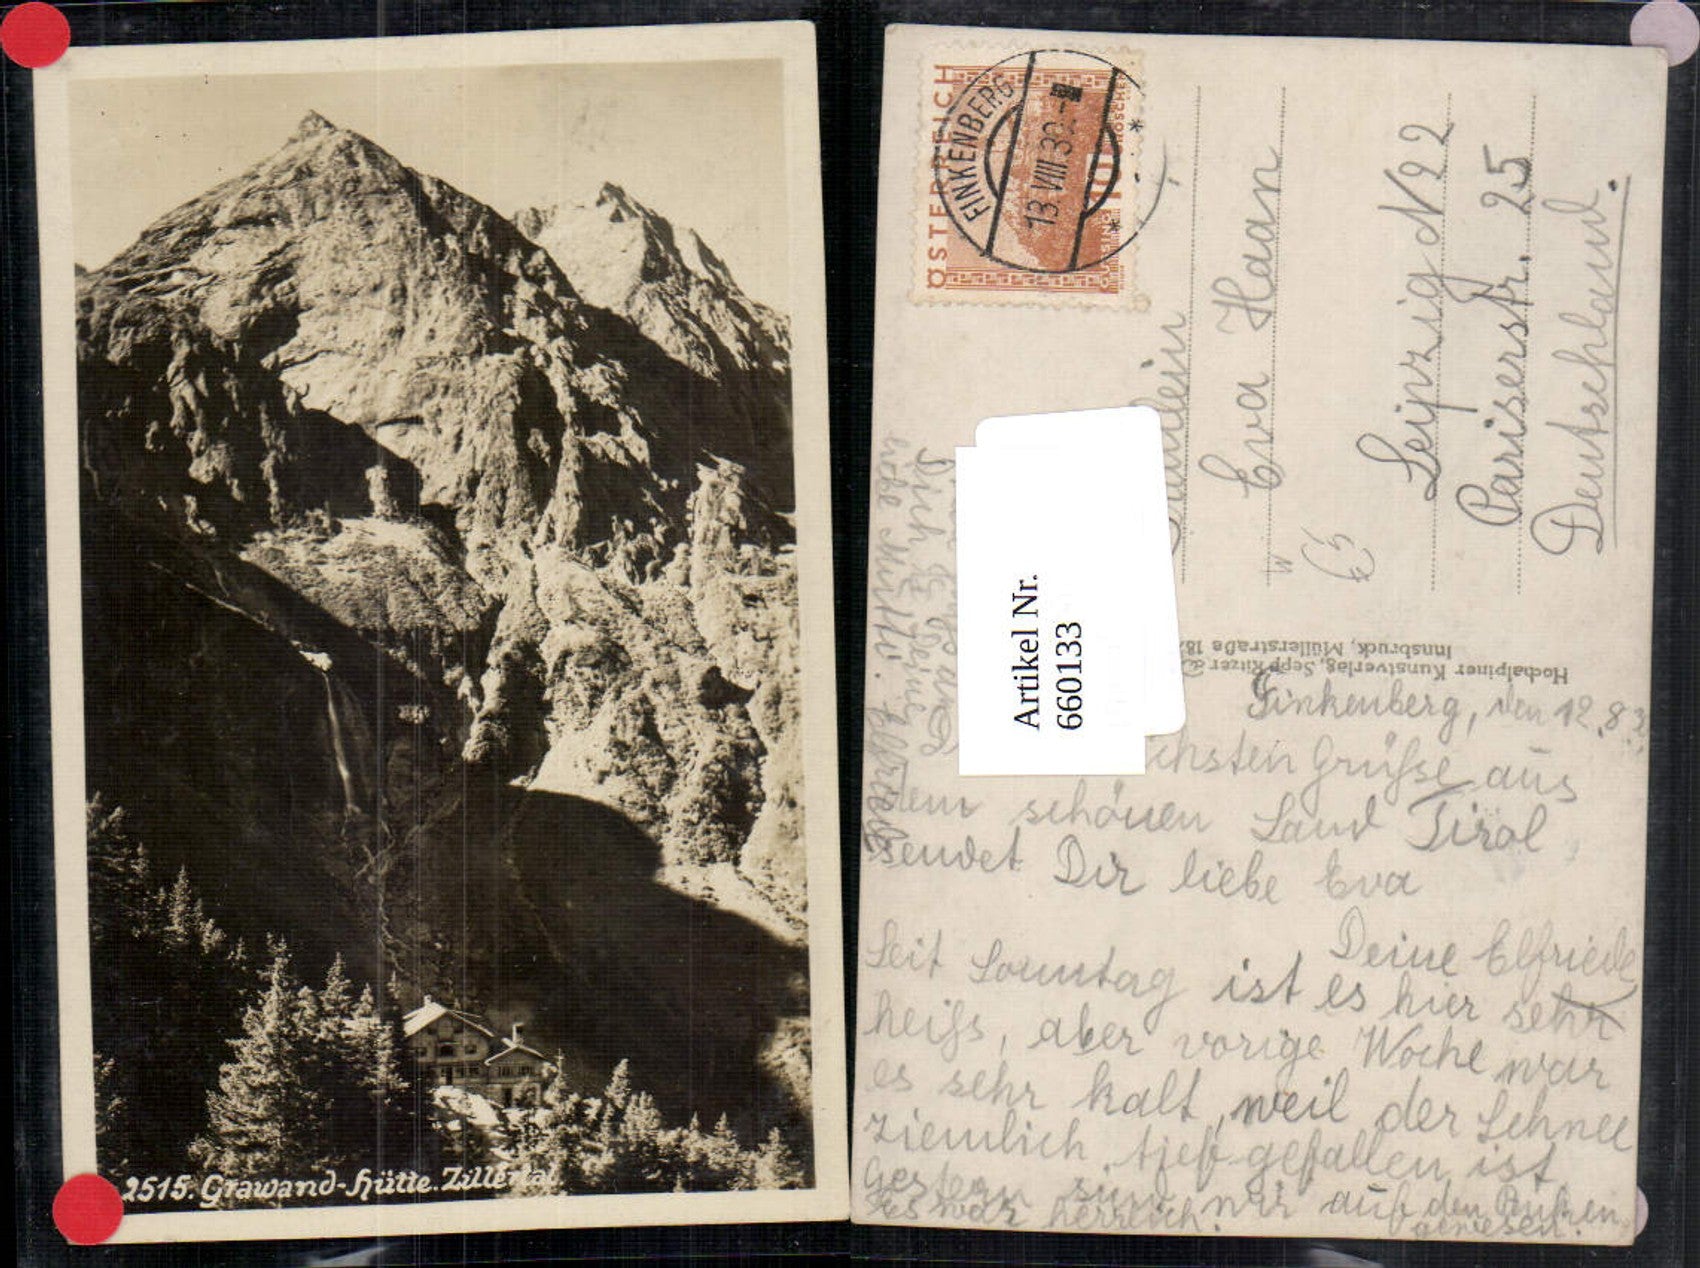 2515. Grawand-Hütte. Zillertal
ÖSTERREICH
10 GROSCHEN
GÜSSING
FINKENBERG
13.VIII.32
Eva Haan
Leipzig N 22
Pariserstr. 25
Deutschland.
Artikel Nr.
660133
Hochalpiner Kunstverlag, Sepp Ritzer
Innsbruck, Müllerstraße
Finkenberg, den 12.8.
chsten Grüße aus
dem schönen Land Tirol
sendet Dir liebe Eva
Deine Elfriede
Seit Sonntag ist es hier sehr
heiß, aber vorige Woche war
es sehr kalt, weil der Schnee
ziemlich tief gefallen ist
Gestern sind wir auf den
gewesen.
Es war herrlich.